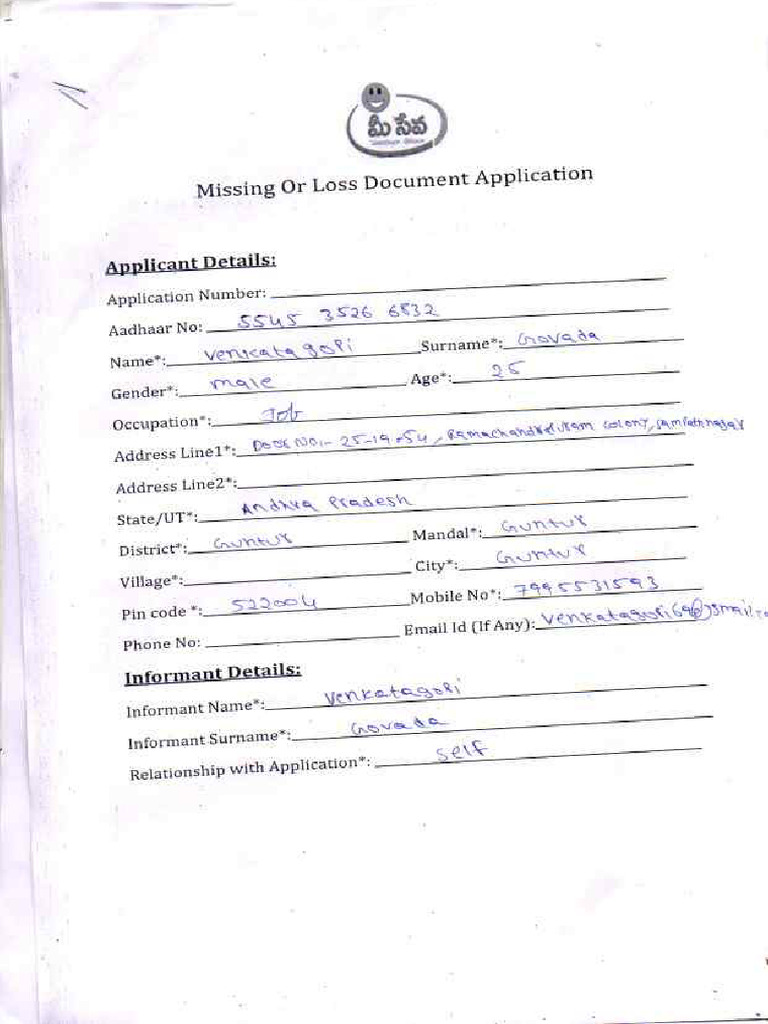 మీ సేవ
Missing Or Loss Document Application
Applicant Details:
Application Number:
Aadhaar No: 5545 3526 6532
Name*: Venkata gopi Surname*: Govada
Gender*: male Age*: 25
Occupation*: Job
Address Line1*: Door No:- 25-19-54, Ramachandrapuram colony, Sampathnagar
Address Line2*:
State/UT*: Andhra Pradesh
District*: Guntur Mandal*: Guntur
Village*: City*: Guntur
Pin code *: 522004 Mobile No*: 7995531593
Phone No: Email Id (If Any): Venkatagopi69@gmail.co
Informant Details:
Informant Name*: Venkatagopi
Informant Surname*: Govada
Relationship with Application*: Self